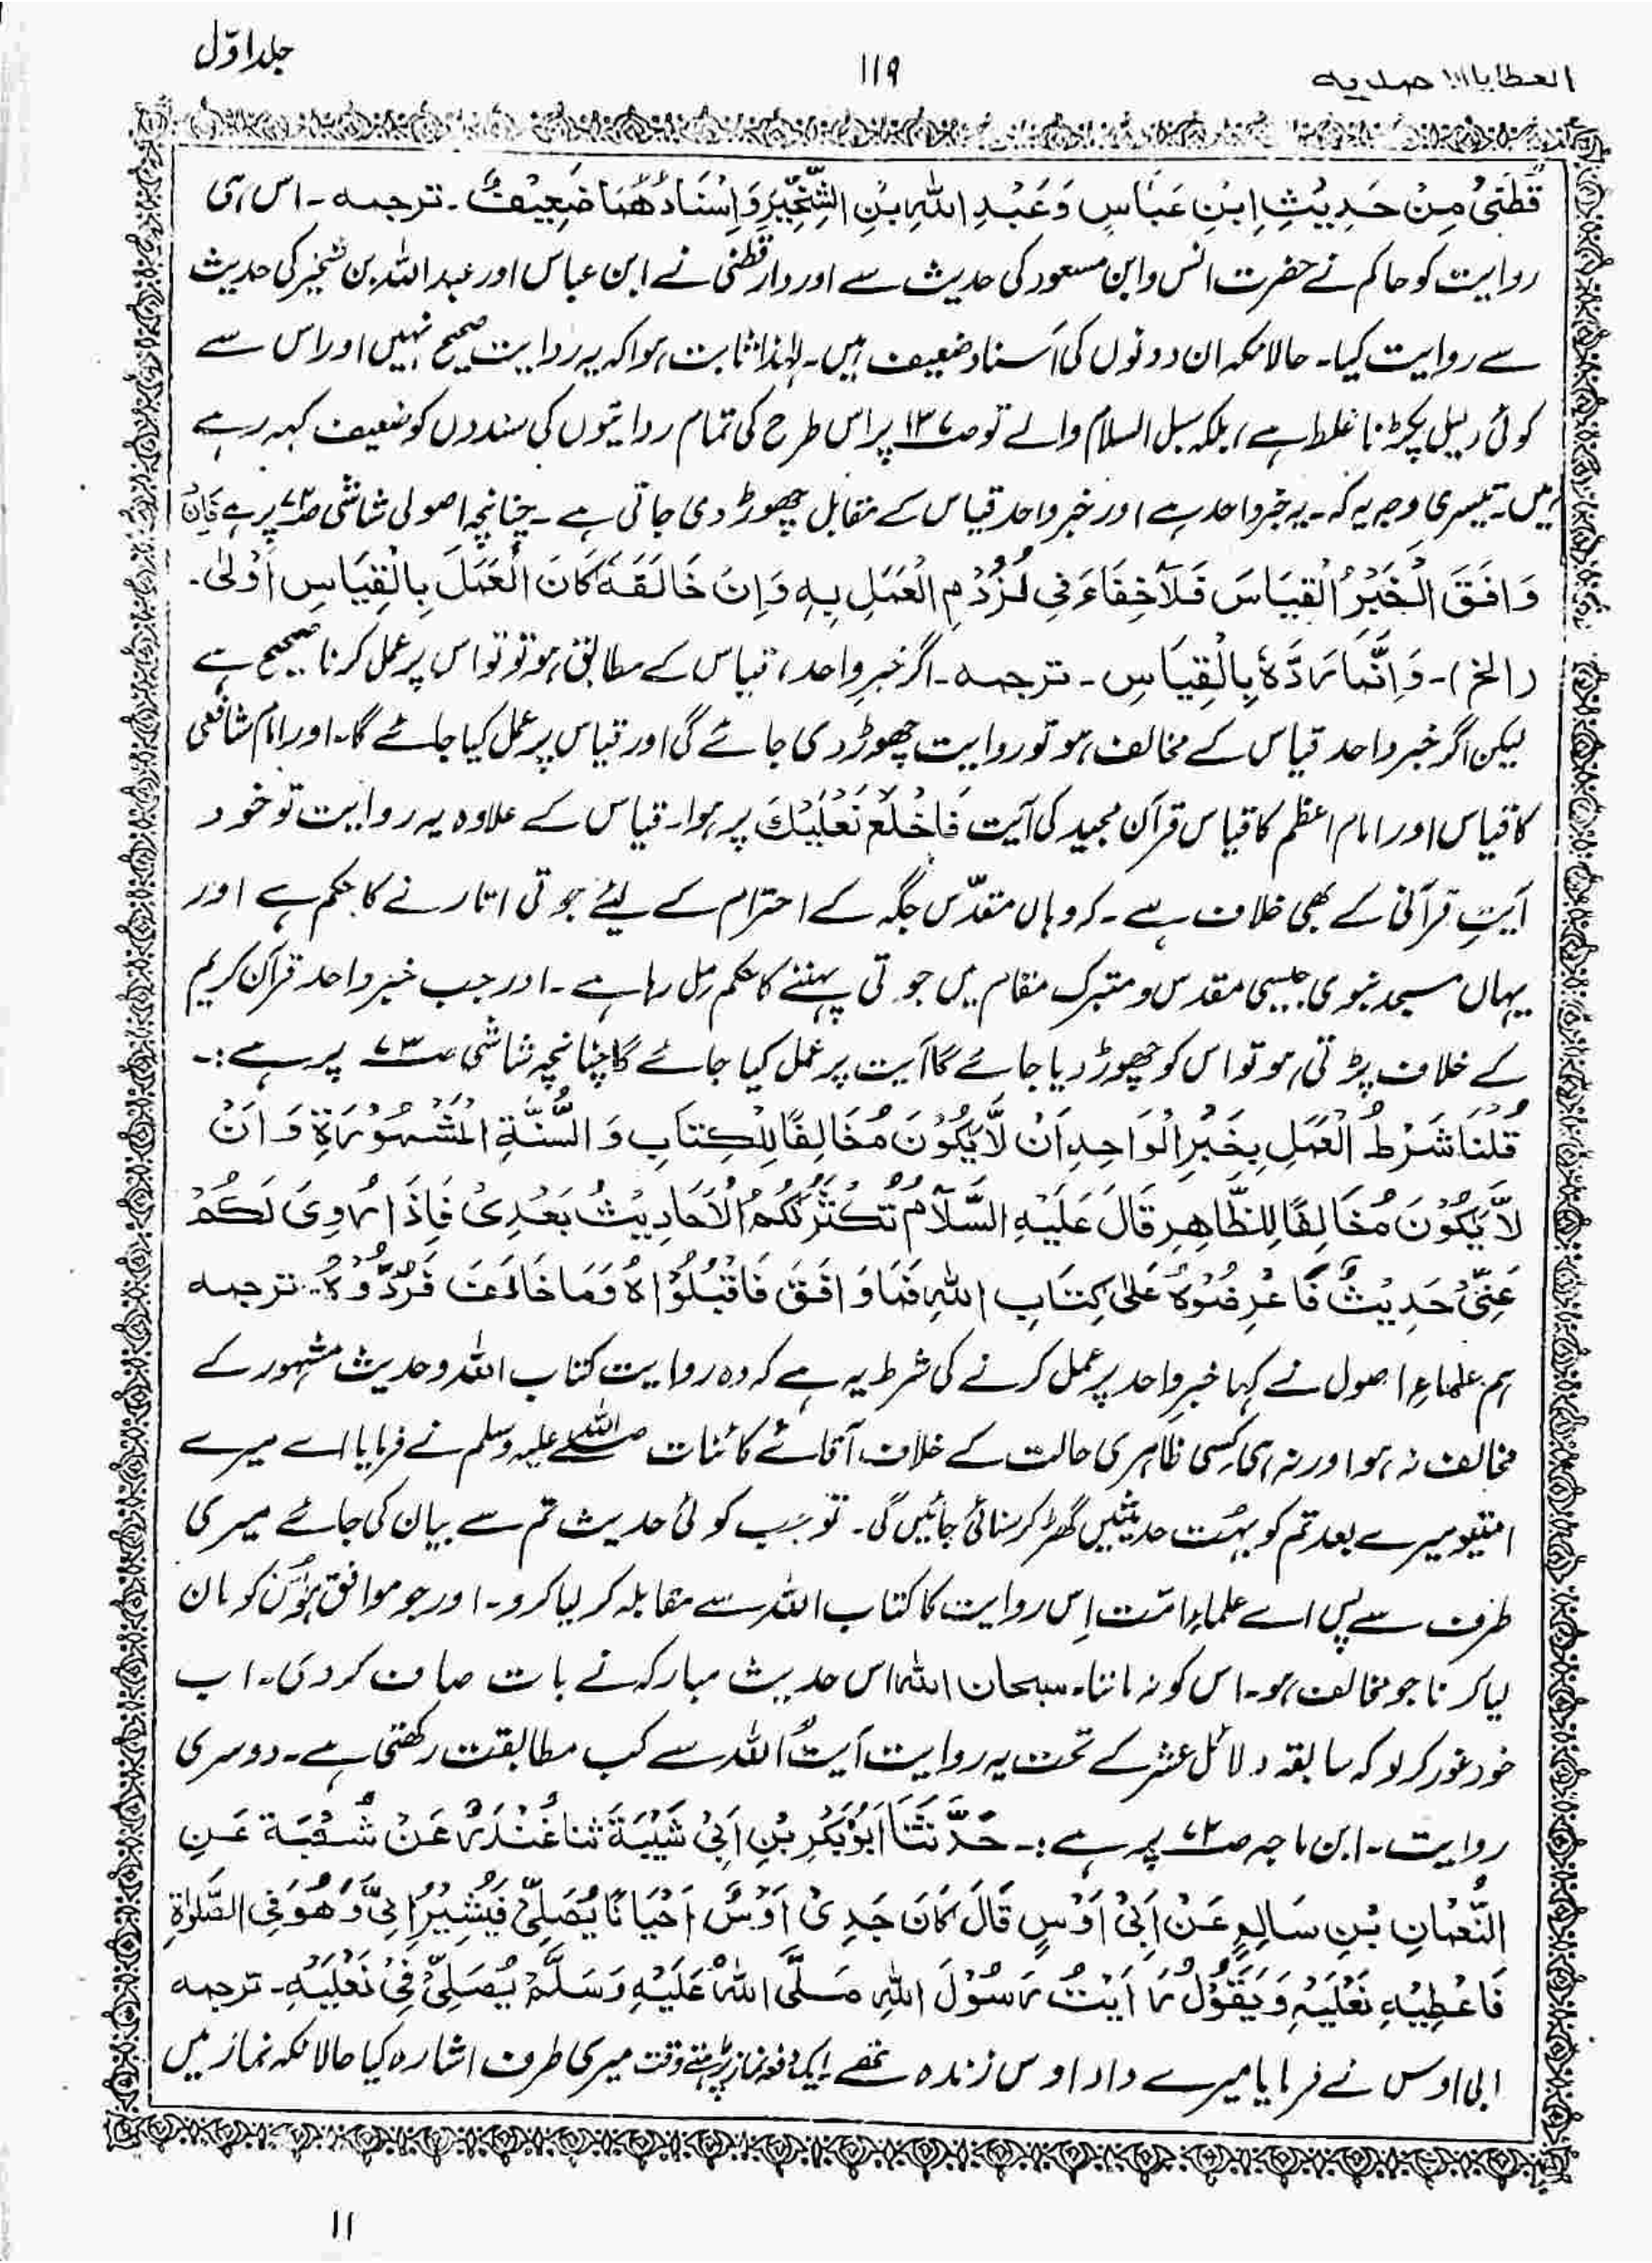 العطایا الاحمدیہ
۱۱۹
جلد اوّل
قُطْنِیْ مِنْ حَدِیْثِ اِبْنِ عَبَّاسٍ وَعَبْدِ اللّٰہِ بْنِ الشِّخِّیْرِ وَاِسْنَادُھُمَا ضَعِیْفٌ۔ ترجمہ۔ اس ہی
روایت کو حاکم نے حضرت انس وابن مسعود کی حدیث سے اور دارقطنی نے ابن عباس اور عبد اللہ بن شخیر کی حدیث
سے روایت کیا۔ حالانکہ ان دونوں کی اَسناد ضعیف ہیں۔ لہٰذا ثابت ہوا کہ یہ روایت صحیح نہیں اور اس سے
کوئی دلیل پکڑنا غلط ہے، بلکہ سبل السلام والے تو صـ۱۳۷ پر اس طرح کی تمام روایتوں کی سندوں کو ضعیف کہہ رہے
ہیں۔ تیسری وجہ یہ کہ۔ یہ خبر واحد ہے اور خبر واحد قیاس کے مقابل چھوڑ دی جاتی ہے۔ چنانچہ اصولی شاشی پر ہے فَاِنْ
وَافَقَ الْخَبَرُ الْقِیَاسَ فَلَاخِفَاءَ فِی لُزُوْمِ الْعَمَلِ بِہٖ وَاِنْ خَالَفَہٗ کَانَ الْعَمَلُ بِالْقِیَاسِ اَوْلٰی۔
(الخ)۔ وَاِنَّمَا رَدَّہٗ بِالْقِیَاسِ۔ ترجمہ۔ اگر خبرِ واحد، قیاس کے مطابق ہو تو تو اس پر عمل کرنا صحیح ہے
لیکن اگر خبر واحد قیاس کے مخالف ہو تو روایت چھوڑ دی جائے گی اور قیاس پر عمل کیا جائے گا۔ اور امام شافعی
کا قیاس اور امام اعظم کا قیاس قرآن مجید کی آیت فَاخْلَعْ نَعْلَیْكَ پر ہوا۔ قیاس کے علاوہ یہ روایت تو خود
آیتِ قرآنی کے بھی خلاف ہے۔ کہ وہاں مقدّس جگہ کے احترام کے لیئے جوتی اتارنے کا حکم ہے اور
یہاں مسجد نبوی جیسی مقدس و متبرک مقام میں جوتی پہننے کا حکم مل رہا ہے۔ اور جب خبر واحد قرآن کریم
کے خلاف پڑتی ہو تو اس کو چھوڑ دیا جائے گا آیت پر عمل کیا جائے گا چنانچہ شاشی صـ۷۳ پر ہے:۔
قُلْنَا شَرْطُ الْعَمَلِ بِخَبْرِ الْوَاحِدِ اَنْ لَّا یَکُوْنَ مُخَالِفًا لِلْکِتَابِ وَ السُّنَّةِ الْمَشْہُوْرَةِ وَ اَنْ
لَّا یَکُوْنَ مُخَالِفًا لِلظَّاھِرِ قَالَ عَلَیْہِ السَّلَامُ تَکْثُرُ لَکُمُ الْاَحَادِیْثُ بَعْدِیْ فَاِذَا رُوِیَ لَکُمْ
عَنِّیْ حَدِیْثٌ فَاعْرِضُوْہُ عَلٰی کِتَابِ اللّٰہِ فَمَا وَافَقَ فَاقْبَلُوْاہُ وَمَا خَالَفَ فَرُدُّوْہُ۔ ترجمہ
ہم علماءِ اصول نے کہا خبرِ واحد پر عمل کرنے کی شرط یہ ہے کہ وہ روایت کتاب اللہ و حدیث مشہور کے
مخالف نہ ہو اور نہ ہی کسی ظاہری حالت کے خلاف۔ آقائے کائنات صلی اللہ علیہ وسلم نے فرمایا اے میرے
امتیو میرے بعد تم کو بہُت حدیثیں گھڑ کر سنائی جائیں گی۔ تو جب کوئی حدیث تم سے بیان کی جائے میری
طرف سے پس اے علماءِ امّت اِس روایت کا کتاب اللہ سے مقابلہ کر لیا کرو۔ اور جو موافق ہو اُس کو مان
لیا کرنا جو مخالف ہو۔ اس کو نہ ماننا۔ سبحان اللہ اس حدیث مبارکہ نے بات صاف کر دی۔ اب
خود غور کر لو کہ سابقہ دلائل عشر کے تحت یہ روایت آیتُ اللہ سے کب مطابقت رکھتی ہے۔ دوسری
روایت۔ ابن ماجہ پر ہے:۔ حَدَّثَنَا اَبُوْبَکْرِ بْنِ اَبِیْ شَیْبَةَ ثنا غُنْدَرٌ عَنْ شُعْبَة عَنِ
النُّعْمَانِ بْنِ سَالِمٍ عَنْ اَبِیْ اَوْسٍ قَالَ کَانَ جَدِیْ اَوْسٌ اَحْیَانًا یُصَلِّیْ فَیُشِیْرُ اِلَیَّ وَھُوَ فِی الصَّلٰوةِ
فَاعْطِیْہِ نَعْلَیْہِ وَیَقُوْلُ رَاَیْتُ رَسُوْلَ اللّٰہِ صَلَّی اللّٰہُ عَلَیْہِ وَسَلَّمَ یُصَلِّیْ فِیْ نَعْلَیْہِ۔ ترجمہ
ابی اوس نے فرمایا میرے دادا اوس زندہ تھے ایک دفعہ نماز پڑھتے وقت میری طرف اشارہ کیا حالانکہ نماز میں
۱۱